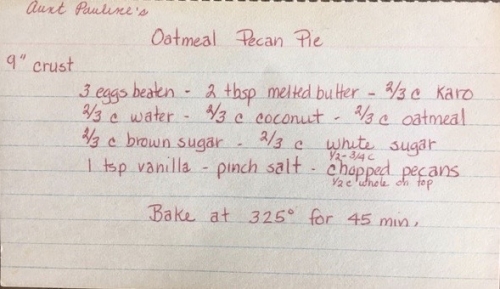 Aunt Pauline's
Oatmeal Pecan Pie
9" crust
3 eggs beaten - 2 tbsp melted butter - 2/3 c Karo
2/3 c water - 2/3 c coconut - 2/3 c oatmeal
2/3 c brown sugar - 2/3 c white sugar
1/2-3/4 c
1 tsp vanilla - pinch salt - chopped pecans
1/2 c whole on top
Bake at 325° for 45 min.